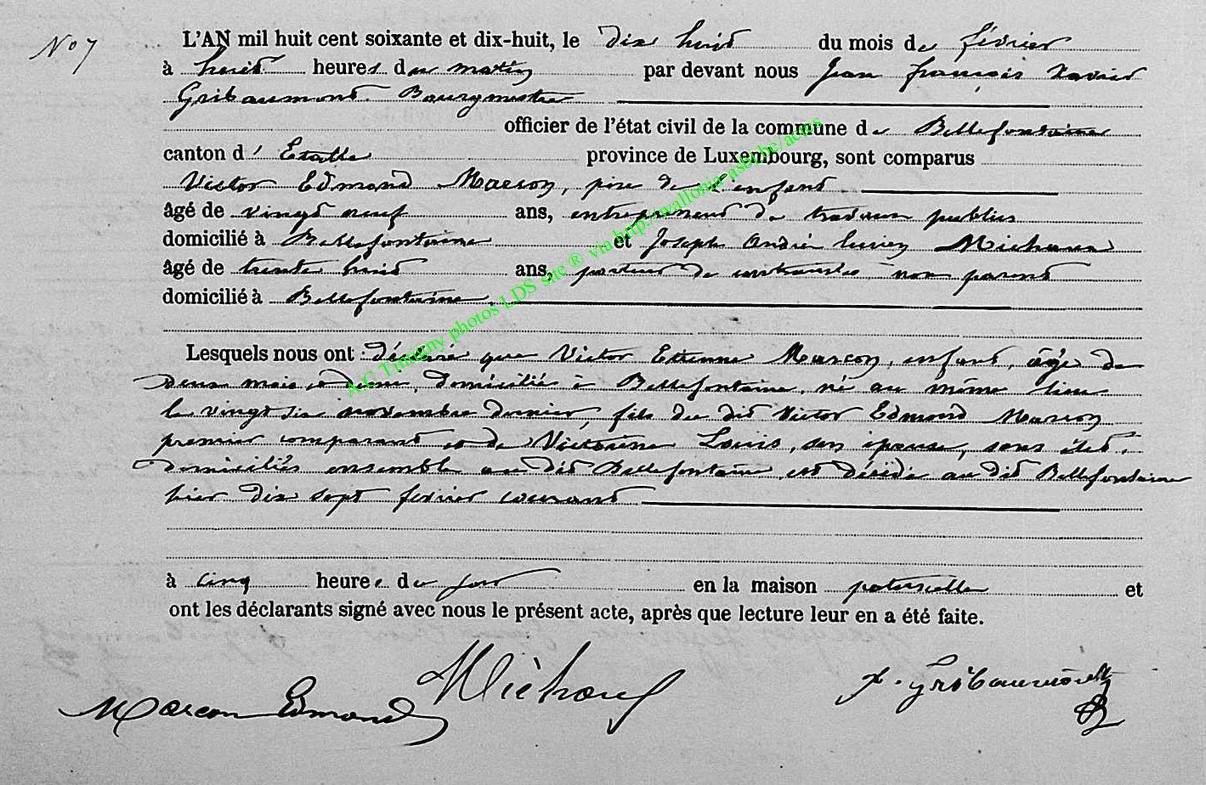 No 7
L'AN mil huit cent soixante et dix-huit, le dix huit du mois de février
à huit heures du matin par devant nous Jean françois Xavier
Gribaumont Bourgmestre
officier de l'état civil de la commune de Bellefontaine
canton d' Etalle province de Luxembourg, sont comparus
Victor Edmond Marson, père de l'enfant
âgé de vingt neuf ans, entrepreneur de travaux publics
domicilié à Bellefontaine et Joseph André lucien Michaux
âgé de trente huit ans, porteur de contraintes non parent
domicilié à Bellefontaine,
Lesquels nous ont déclaré que Victor Etienne Marson, enfant, âgé de
deux mois et demi, domicilié à Bellefontaine, né au même lieu
le vingt six novembre dernier, fils du dit Victor Edmond Marson
premier comparant et de Victorine Louis, son épouse, tous
domiciliés ensemble au dit Bellefontaine est décédé au dit Bellefontaine
hier dix sept février courant
à cinq heures du soir en la maison paternelle et
ont les déclarants signé avec nous le présent acte, après que lecture leur en a été faite.
Marson Edmond
Michaux
x. Gribaumont
A.C Tintigny photos LDS site ® via http://wallonia-asbl.be/actes